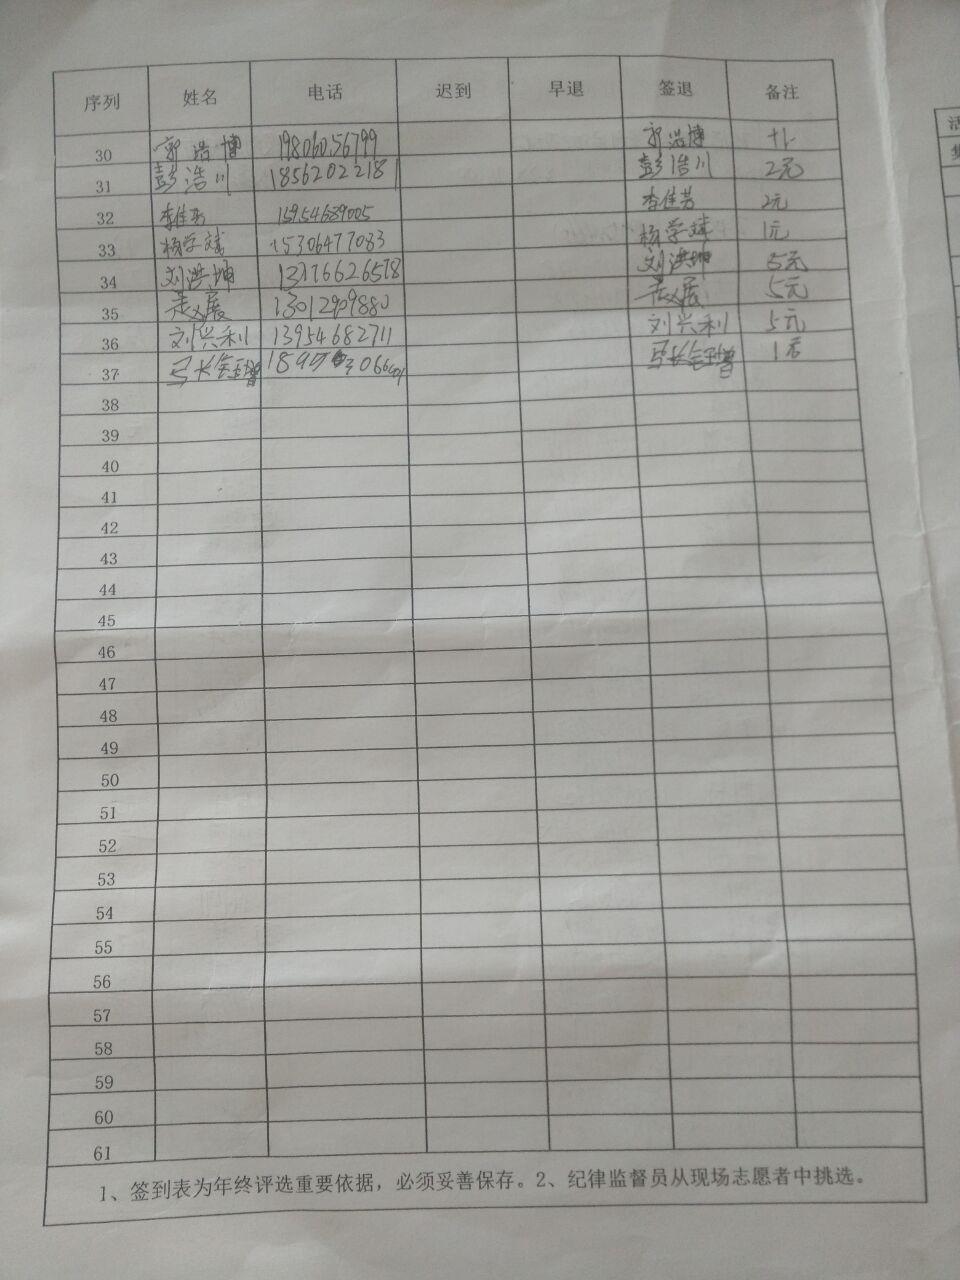 序列 姓名 电话 迟到 早退 签退 备注
30 郭浩博 19806056799 郭浩博
31 彭浩川 18562022181 彭浩川 2元
32 李佳芳 15954689005 李佳芳 2元
33 杨学斌 15306477083 杨学斌 1元
34 刘洪坤 13176626578 刘洪坤 5元
35 13012909880 5元
36 刘兴利 13954682711 刘兴利 5元
37
38
39
40
41
42
43
44
45
46
47
48
49
50
51
52
53
54
55
56
57
58
59
60
61
1、签到表为年终评选重要依据，必须妥善保存。2、纪律监督员从现场志愿者中挑选。